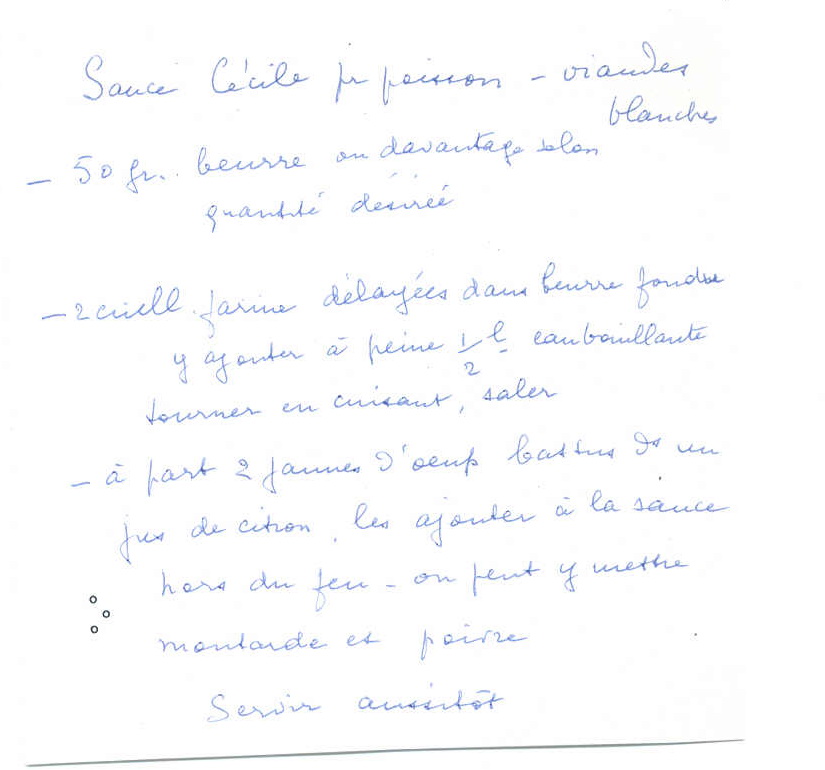 Sauce Cécile pr poisson - viandes
blanches
- 50 gr. beurre ou davantage selon
quantité désirée
- 2 cuill. farine délayées dans beurre fondu
y ajouter à peine 1/2 l eau bouillante
tourner en cuisant, saler
- à part 2 jaunes d'oeufs battus ds un
jus de citron, les ajouter à la sauce
hors du feu - on peut y mettre
moutarde et poivre
Servir aussitôt